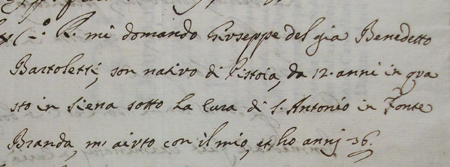 R. mi domando Giuseppe del gia Benedetto
Bartoletti, son nativo di Pistoia, da 12. anni in qua
sto in Siena sotto la Cura di S. Antonio in Fonte
Branda, mi aiuto con il mio, et ho anni 36.